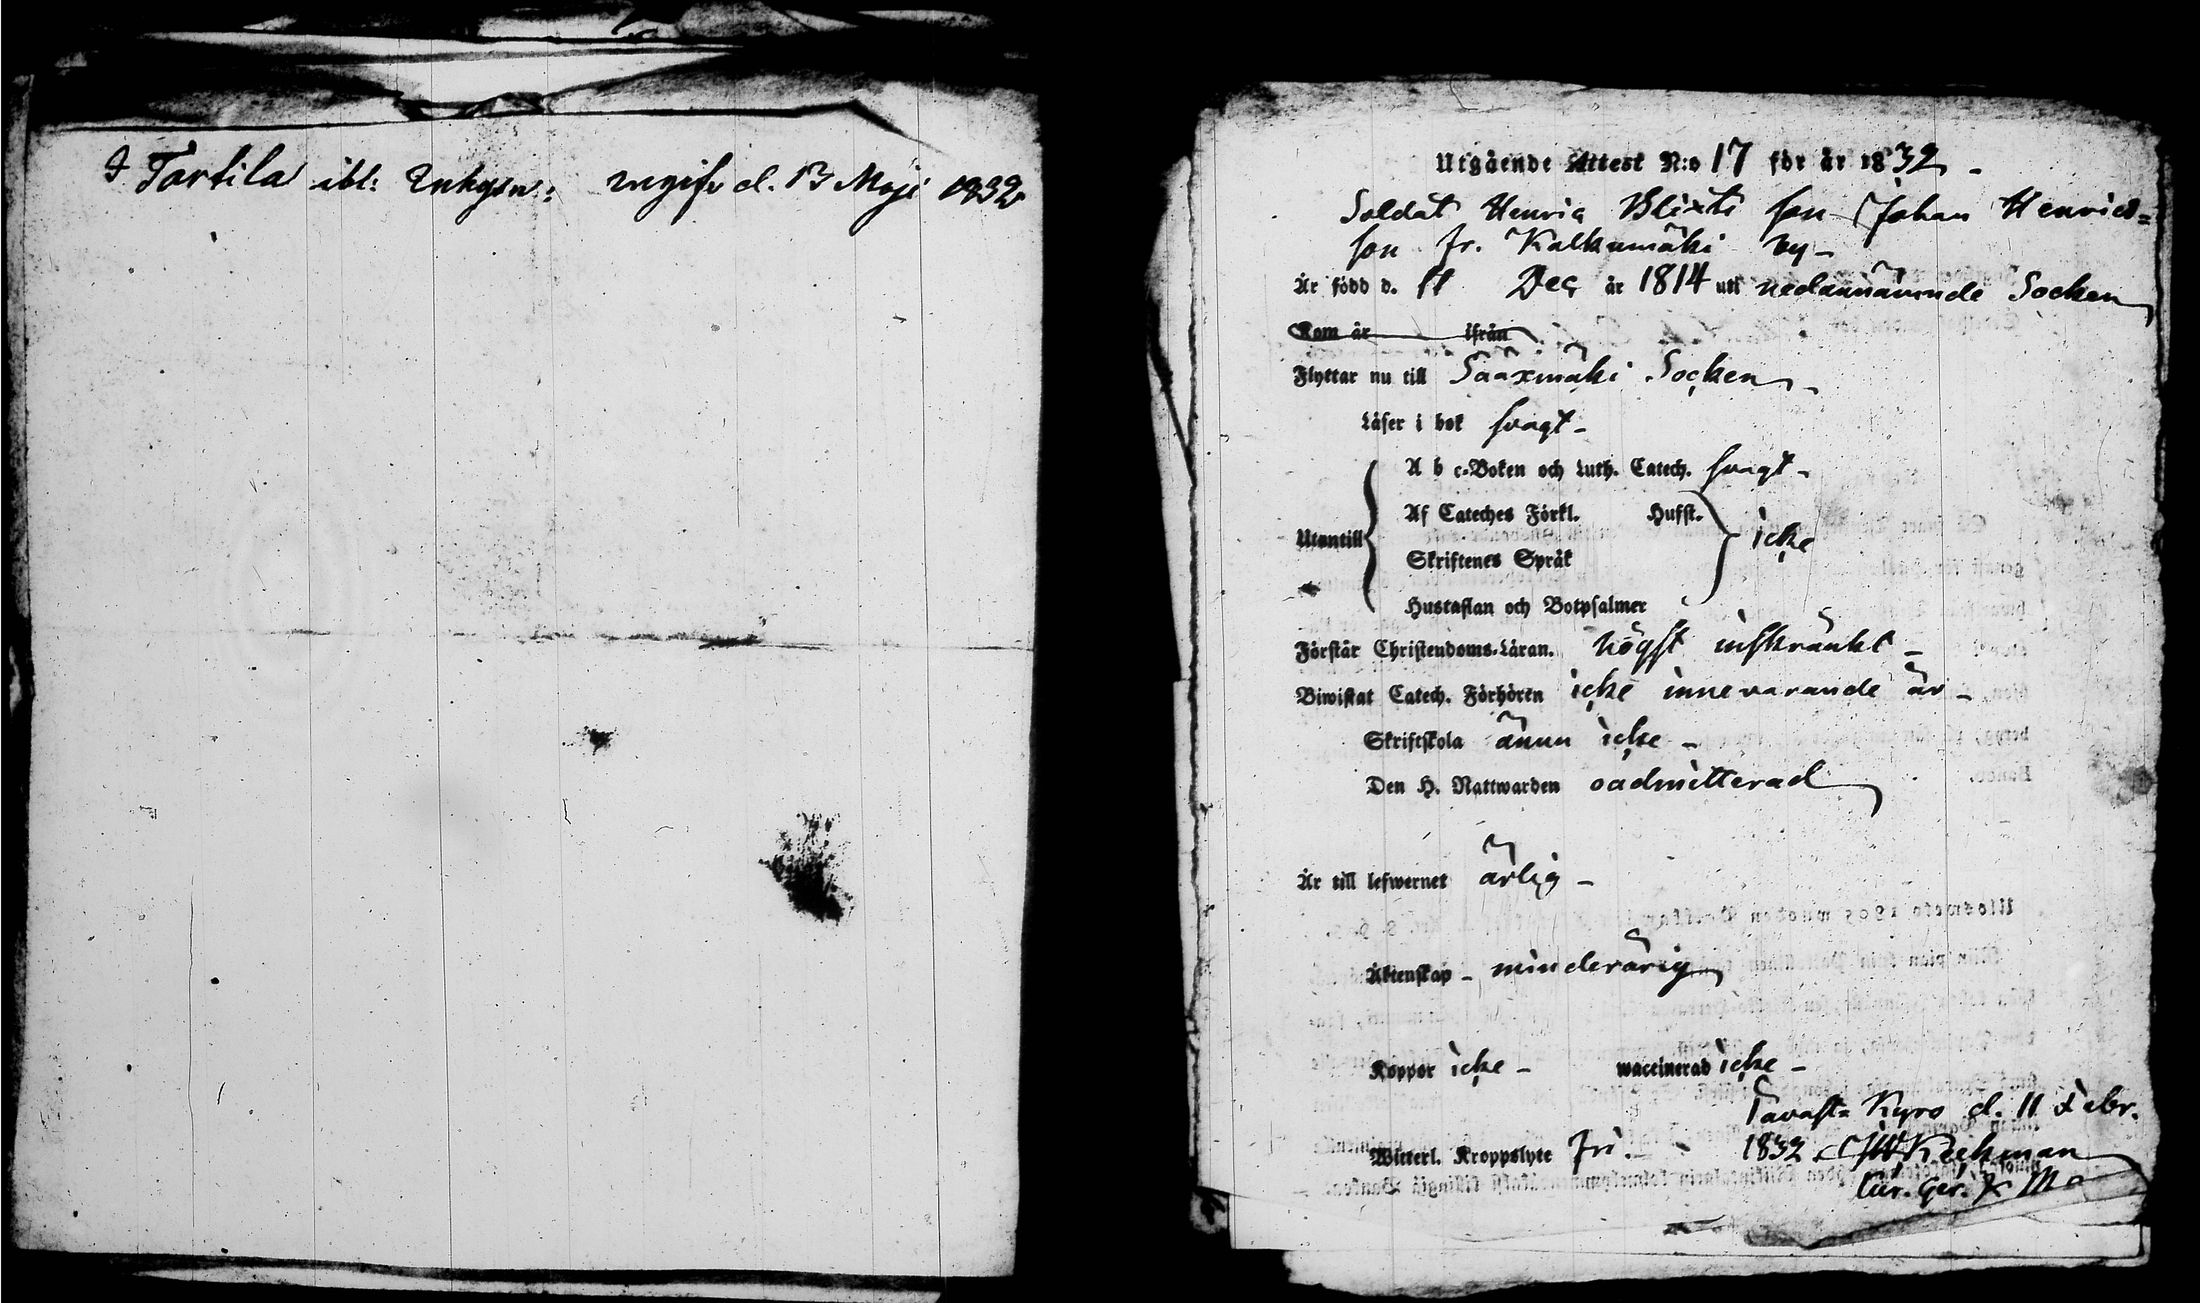 I Tarttila ibl: Inhysn: ingifv d. 13 Maji 1832
Utgående Attest N:o 17 för år 1832 -
Soldat Henric Blixts son Johan Henrics=
son fr. Kalkunmäki by -
Är född d. 11 Dec år 1814 uti nedannämnde Socken
Kom år ifrån
Flyttar nu till Sääxmäki Socken -
Läser i bok svagt -
A b c-Boken och Luth. Catech. svagt -
Af Cateches Förkl. Hufst.
Utantill icke
Skriftenes Språk
Hustaflan och Botpsalmer
Förstår Christendoms-Läran. högst inskränkt -
Biwistat Catech. Förhören icke innevarande år -
Skriftskola ännu icke -
Den H. Nattwarden oadmitterad
Är till lefwernet ärlig -
Äktenskap - minderårig
Koppor icke - waccinerad icke -
Tavast= Kyro d. 11 Febr.
Witterl. Kroppslyte fri. - 1832